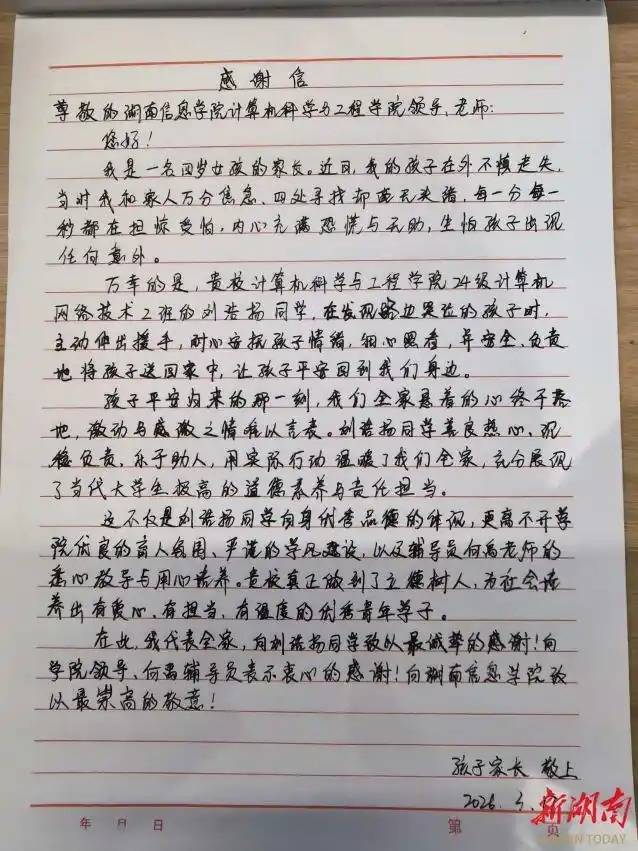 感谢信
尊敬的湖南信息学院计算机科学与工程学院领导、老师:
您好!
我是一名四岁女孩的家长。近日,我的孩子在外不慎走失,
当时我和家人万分焦急、四处寻找却毫无头绪,每一分每一
秒都在担惊受怕,内心充满恐慌与无助,生怕孩子出现
任何意外。
万幸的是,贵校计算机科学与工程学院24级计算机
网络技术2班的刘浩扬同学,在发现路边哭泣的孩子时,
主动伸出援手,耐心安抚孩子情绪,细心照看,并安全、负责
地将孩子送回家中,让孩子平安回到我们身边。
孩子平安归来的那一刻,我们全家悬着的心终于落
地,激动与感激之情难以言表。刘浩扬同学善良热心、沉
稳负责、乐于助人,用实际行动温暖了我们全家,充分展现
了当代大学生极高的道德素养与责任担当。
这不仅是刘浩扬同学自身优秀品德的体现,更离不开贵
院优良的育人氛围、严谨的学风建设,以及辅导员何禹老师的
悉心教导与用心培养。贵校真正做到了立德树人,为社会培
养出有爱心、有担当、有温度的优秀青年学子。
在此,我代表全家,向刘浩扬同学致以最诚挚的感谢!向
学院领导、何禹辅导员表示衷心的感谢!向湖南信息学院致
以最崇高的敬意!
孩子家长 敬上
2026.
年 月 日 第 页
新湖南
HUNAN TODAY